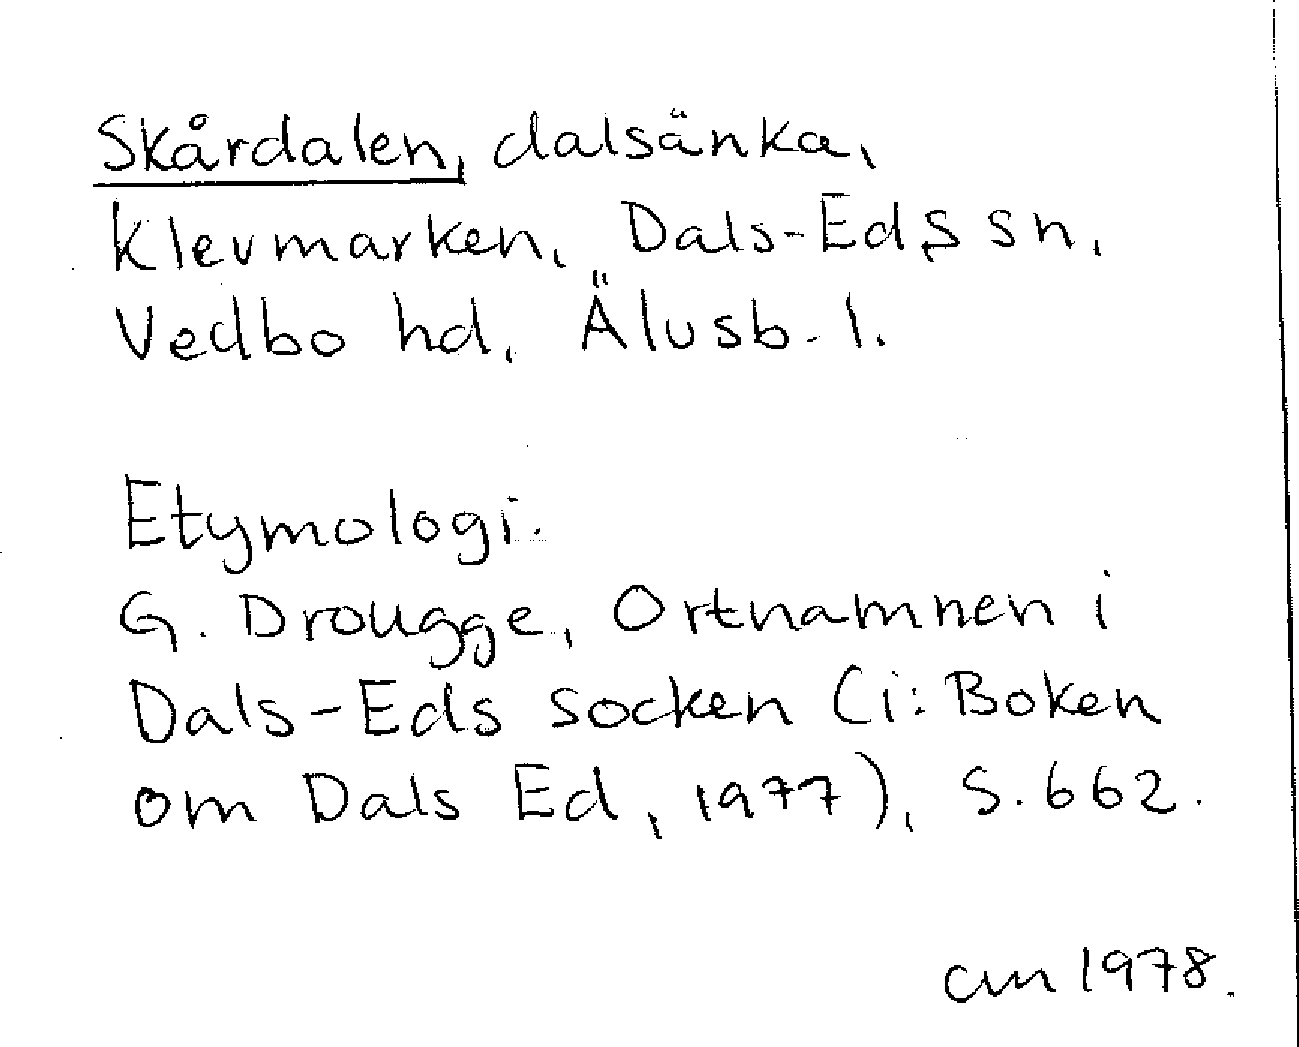 Skårdalen, dalsänka,
Klevmarken, Dals-Eds sn,
Vedbo hd, Älvsb. l.
Etymologi.
G. Drougge, Ortnamnen i
Dals-Eds socken (i: Boken
om Dals Ed, 1977), s. 662.
cm 1978.